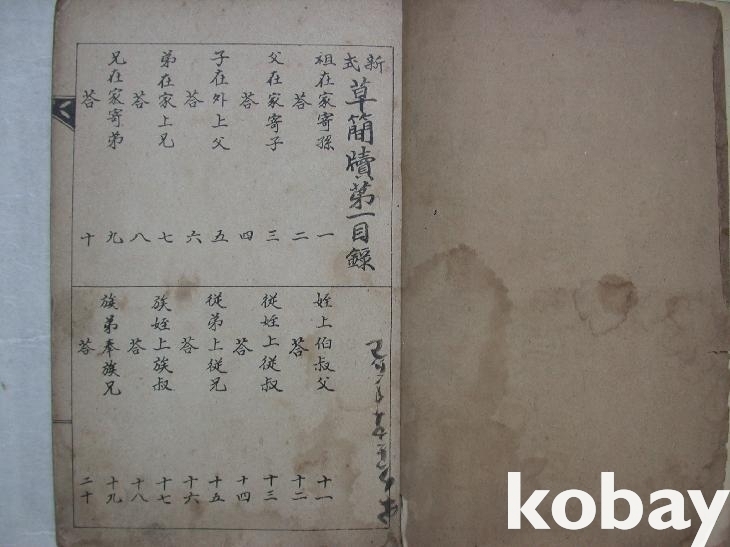 新式
草簡牘第一目錄
祖在家寄孫 一
答 二
父在家寄子 三
答 四
子在外上父 五
答 六
弟在家上兄 七
答 八
兄在家寄弟 九
答 十
姪上伯叔父 十一
答 十二
從姪上從叔 十三
答 十四
從弟上從兄 十五
答 十六
族姪上族叔 十七
答 十八
族弟奉族兄 十九
答 二十
kobay